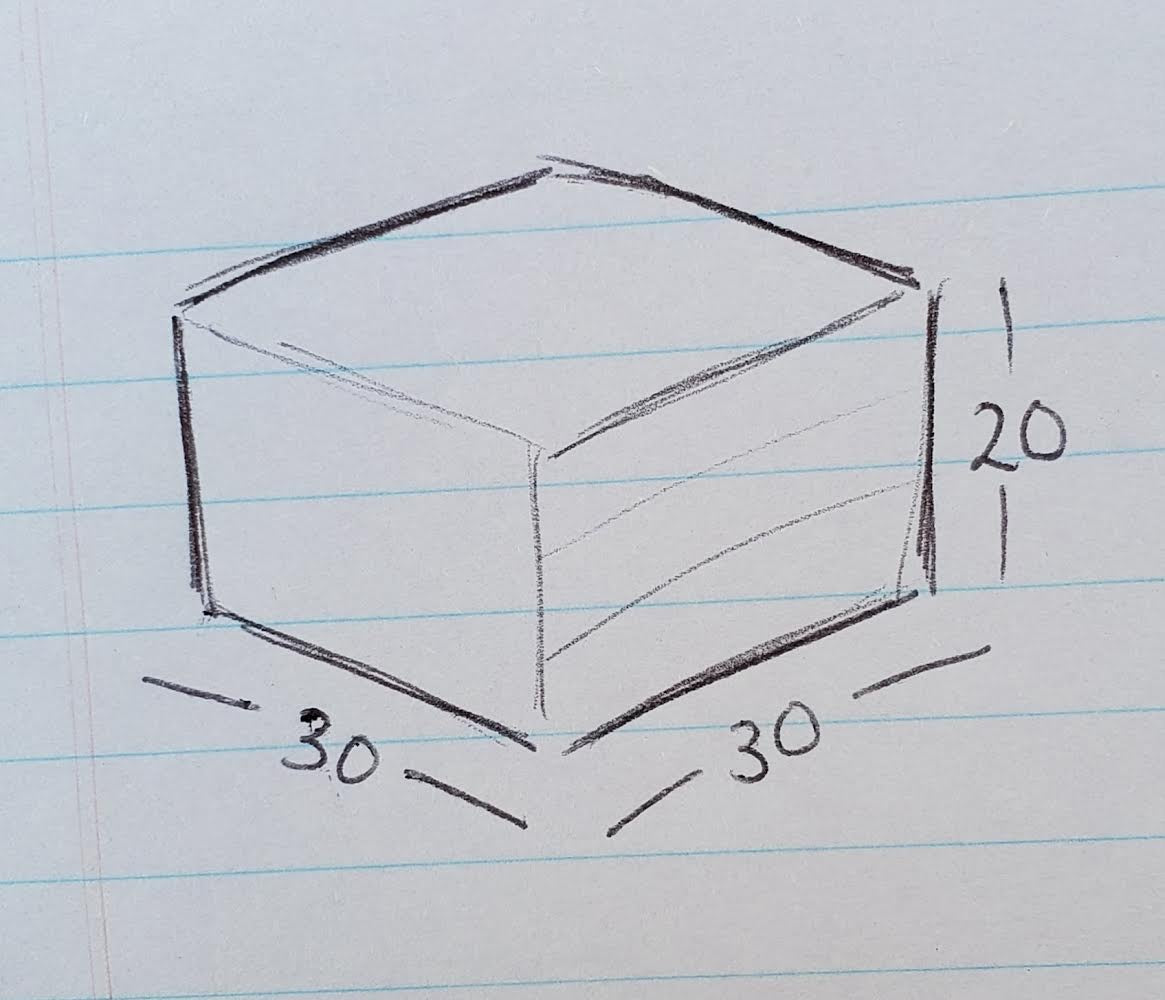 20
30
30